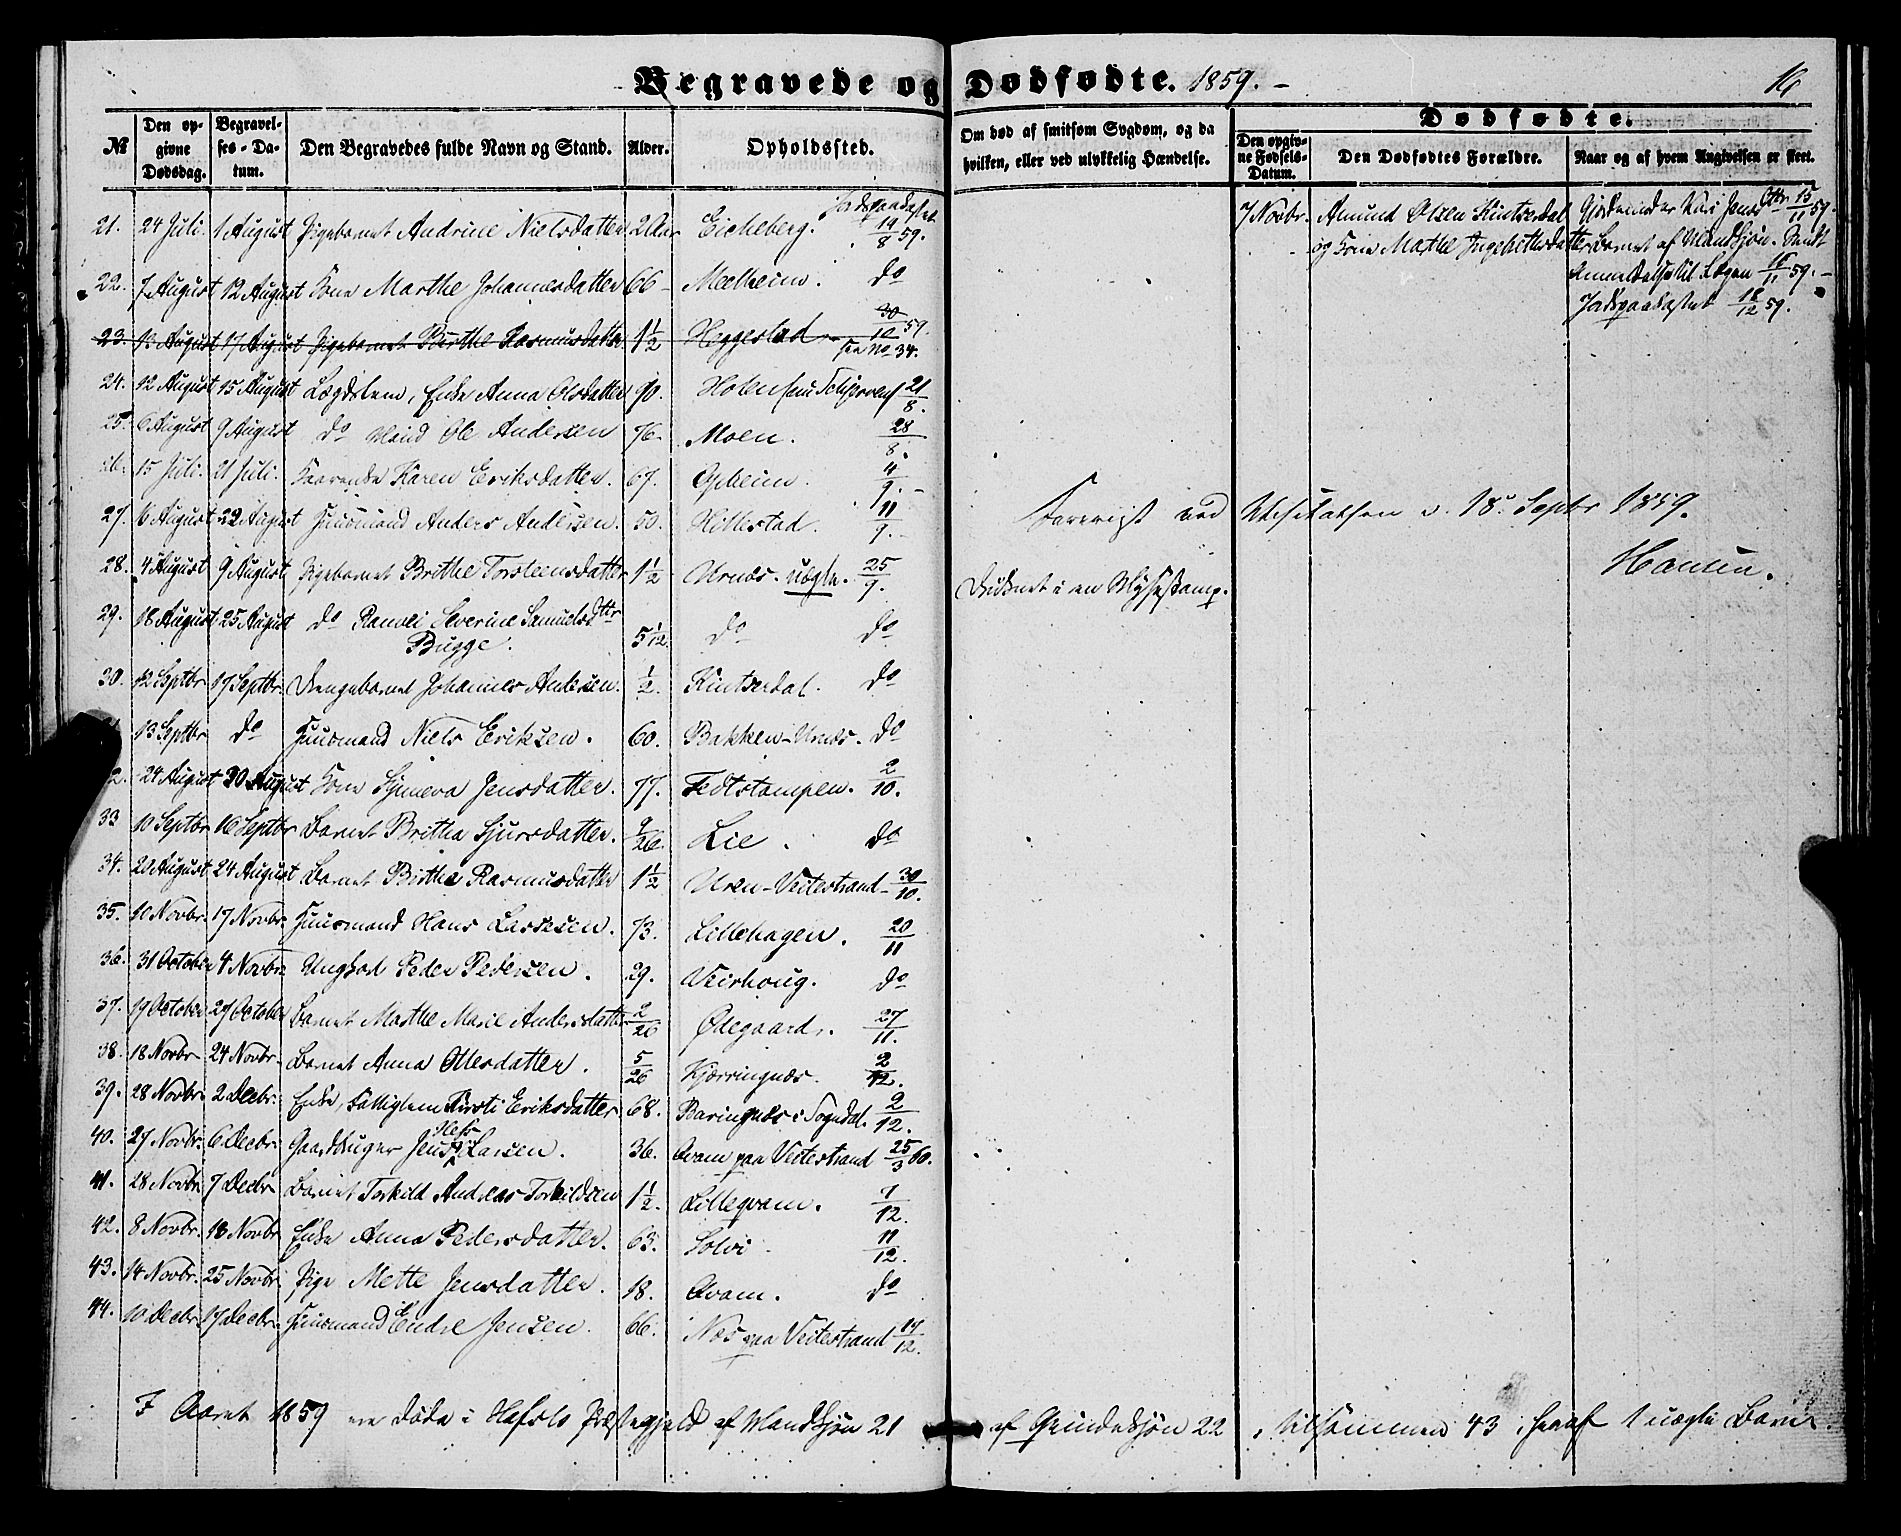 Begravede og Dødfødte. 1859. – 16
№ Den opgivne Dødsdag. Begravelses-Datum. Den Begravedes fulde Navn og Stand. Alder. Opholdssted. Om død af smitsom Sygdom, og da hvilken, eller ved ulykkelig Hændelse. Dødfødte.
Den opgivne Fødsels-Datum. Den Dødfødtes Forældre. Naar og af hvem Angivelsen er skeet.
Jordspaakastet
21. 24 Juli. 1 August Pigebarnet Andrine Nielsdatter 2 Aar Eicheberg. 19/8 59.
7 Novbr. Amund Olsen Kintserdal
og Kone Marthe Ingebrethsdatter
Jordspaakastet 18/12 59.
22. 7 August 12 August Kone Marthe Johannesdatter 66 – Melheim. do
23. 17 August Pigebarnet Birthe Rasmusdatter. 1½ Heggestad 30/10 59.
see No 34.
24. 12 August 15 August Lægdslem, Enke Anna Olsdatter 90. Holen 21/8.
25. 6 August 9 August do Mand Ole Andersen 76. Moen. 28/8.
26. 15 Juli. 21 Juli. Kaarenke Karen Eriksdatter. 67. Opheim. 4/9. –
27. 16 August 22 August Huusmand Anders Andersen. 50. Hillestad. 11/9. –
Foreviist ved Visitatsen d. 18. Septbr 1859.
28. 4 August 9 August Pigebarnet Brithe Torsteensdatter 1½ Urnæs. uægte. 25/9. Druknet i en Mysestamp.
29. 18 August 25 August do Ranvei Severine Samuelsdttr
Bugge. 5 1/12 do do
30. 12 Septbr 17 Septbr. Drengebarnet Johannes Andersen. ½. Kintserdal. do
13 Septbr do Huusmand Niels Eriksen. 60. Bakken – Urnæs. do
2. 24 August 30 August Kone Synneva Jensdatter. 77. Fedtstampen. 2/10.
33 10 Septbr 16 Septbr Barnet Britha Sjursdatter. 9/26. Lie. do
34. 20 August 24 August Barnet Birthe Rasmusdatter 1½ Uren – Veitestrand – 30/10.
35. 10 Novbr. 17 Novbr. Huusmand Hans Lassesen. 73. Lillehagen. 20/11
36. 31 October 4 Novbr. Ungkarl Peder Pedersen. 29. Veirhoug. do
37. 19 October 27 October Barnet Marthe Marie Andersdatter 2/26 Ødegaard. 27/11.
38. 18 Novbr. 24 Novbr. Barnet Anna Ottesdatter. 5/26 Kjærringnæs. 2/12.
39. 28 Novbr. 2 Decbr. Enke, Fattiglem Kirsti Eriksdatter 68. Baringnæs i Sogndal. 2/12.
40. 27 Novbr. 6 Decbr. Gaardbruger Jens Larsen. 36. Qvam paa Veitestrand 25/3 60.
41. 28 Novbr. 7 Decbr. Barnet Torkild Andreas Torkildsen 1½. Lilleqvam. 7/12.
42. 8 Novbr. 18 Novbr. Enke Anna Pedersdatter. 63. Solvi 11/12.
43. 14 Novbr. 25 Novbr. Pige Mette Jensdatter. 18. Qvam. do
44. 10 Decbr. 17 Decbr. Huusmand Endre Jensen. 66. Næs paa Veitestrand 17/12.
I Aaret 1859 ere døde i Hafslo Præstegjeld af Mandkjøn 21 af Qvindekjøn 22, tilsammen 43, heraf 1 uægte Barn.